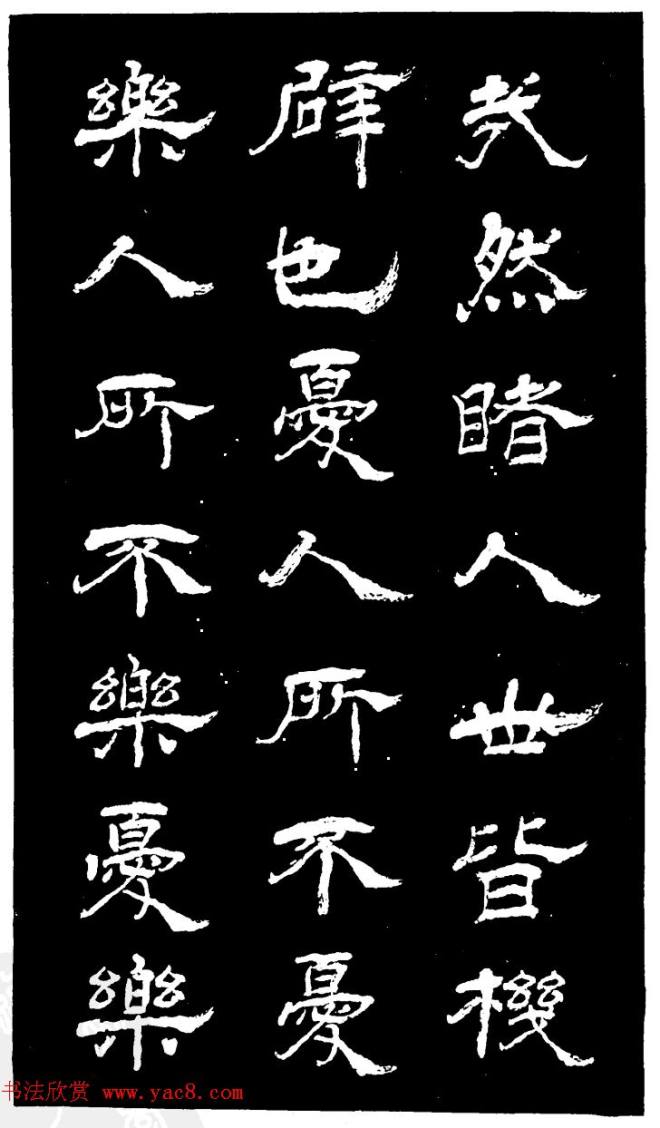 然睹人世皆機
辟也憂人所不憂
樂人所不樂憂樂
书法欣赏 www.yac8.com